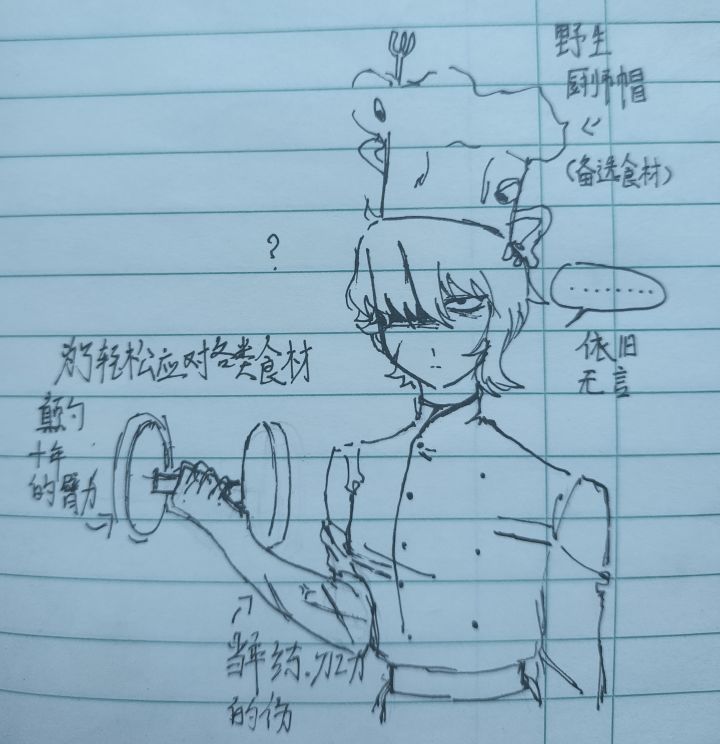 野生
厨师帽
(备选食材)
?
.........
依旧
无言
为了轻松应对各类食材
颠勺
十年
的臂力
当年练刀工
的伤